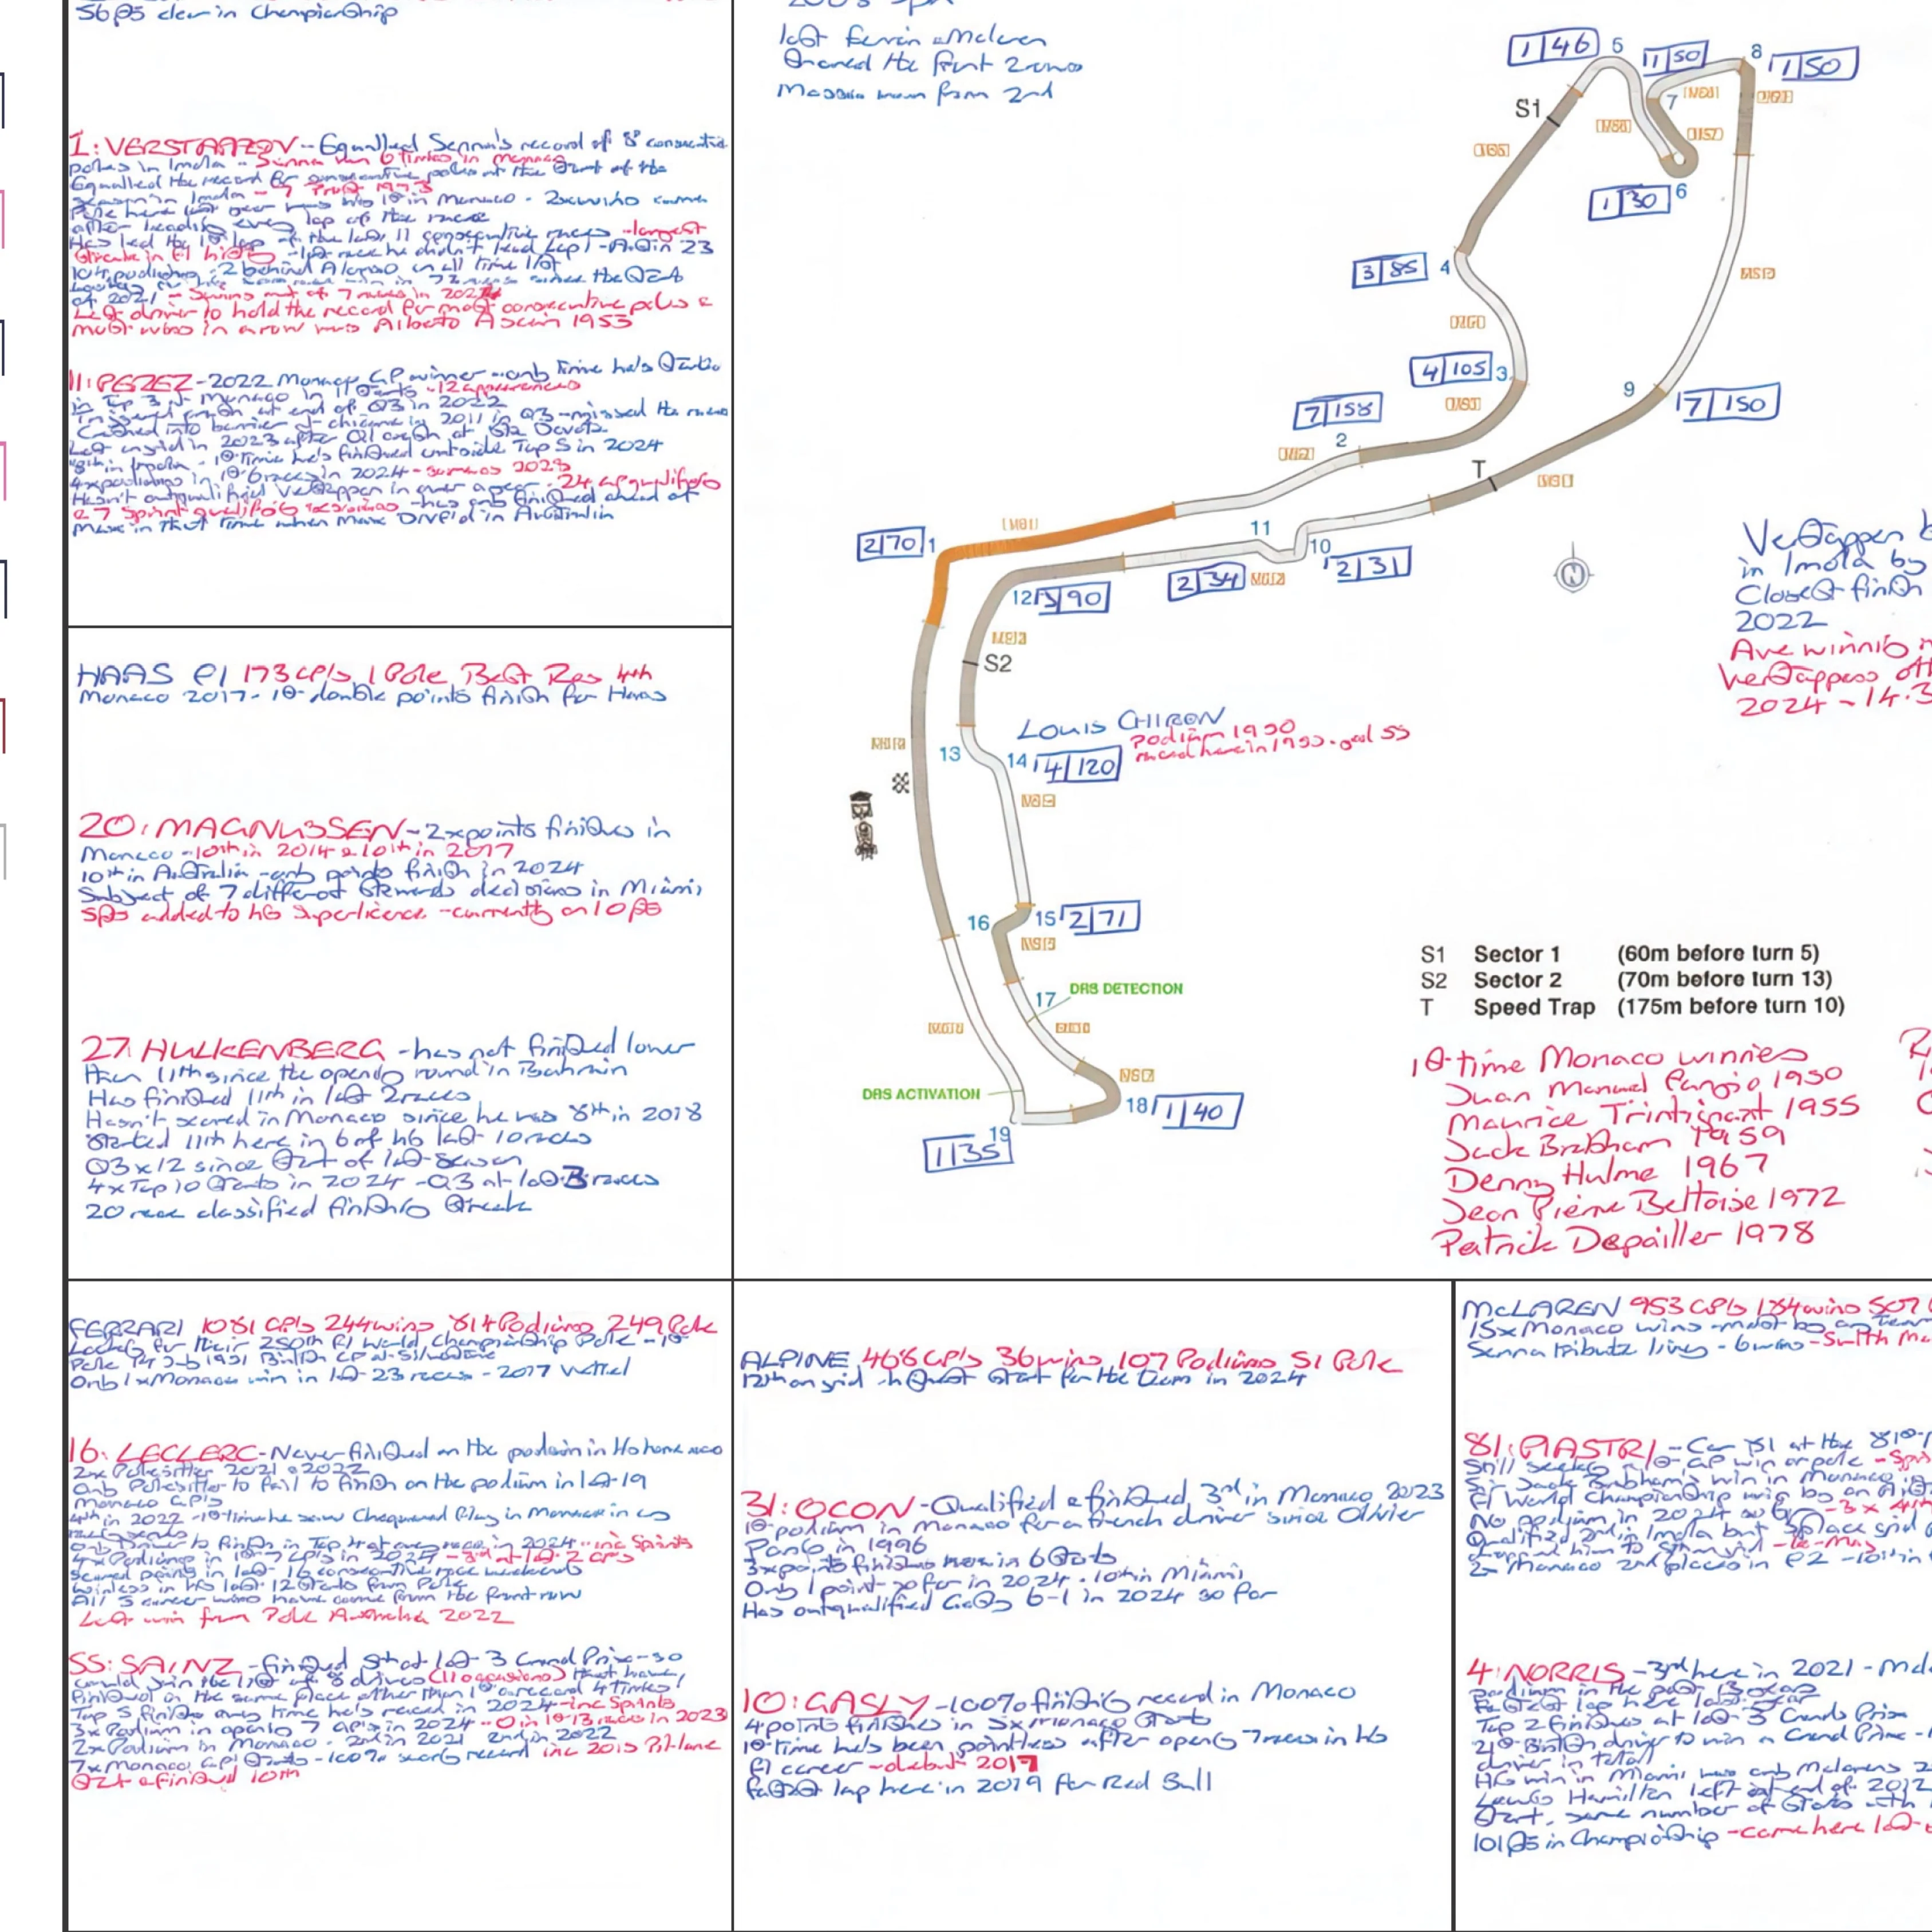 56pts clear in Championship
last Ferrari & McLaren
shared the front 2 rows
Massa won from 2nd
1: VERSTAPPEN - Equalled Senna's record of 8 consecutive
poles in Imola - Senna won 6 times in Monaco
Equalled the record for consecutive poles at the start of the
season in Imola - 7 Prost 1993
Pole here last year was his 1st in Monaco - 2x wins here
after leading every lap of the race
Has led the 1st lap of the last 11 consecutive races - largest
streak in F1 history - last race he didn't lead Lap 1 -
104 podiums - 2 behind Alonso in all time list
of 2021
Last driver to hold the record for most consecutive poles &
most wins in a row was Alberto Ascari 1953
11: PEREZ - 2022 Monaco GP winner - only time he's started
in Top 3 in Monaco in 11 starts - 12 appearances
Triggered crash at end of Q3 in 2022
Crashed into barrier at chicane in 2011 in Q3 - missed the race
Last on grid in 2023 after Q1 crash at Ste Devote
8th in Imola - 1st time he's finished outside Top 5 in 2024
4x podiums in 1st 6 races in 2024 - same as 2023
Hasn't outqualified Verstappen in over a year - 24 GP qualifying
& 7 Sprint qualifying sessions - has only finished ahead of
Max in that time when Max DNF'd in Australia
HAAS F1 173 GP's 1 Pole Best Res 4th
Monaco 2017 - 1st double points finish for Haas
20: MAGNUSSEN - 2x points finishes in
Monaco - 10th in 2014 & 10th in 2017
10th in Australia - only points finish in 2024
Subject of 7 different stewards decisions in Miami
5pts added to his superlicence - currently on 10pts
27: HULKENBERG - has not finished lower
than 11th since the opening round in Bahrain
Has finished 11th in last 2 races
Hasn't scored in Monaco since he was 8th in 2018
Started 11th here in 6 of his last 10 races
Q3 x 12 since start of last season
4x Top 10 starts in 2024 - Q3 at last 3 races
20 race classified finishing streak
1|46
5
1|50
8
1|50
7
S1
6
1|30
3|85
4
4|105
3
9
7|150
7|158
2
T
2|70
1
11
10
2|31
2|34
12
3|90
S2
N
13
14
4|120
LOUIS CHIRON
podium 1950
raced here in 1955 - aged 55
16
15
2|71
17
DRS DETECTION
DRS ACTIVATION
18
1|40
19
1|35
Verstappen
in Imola by
Closest finish
2022
Ave winning
Verstappens
2024 - 14.3
S1 Sector 1 (60m before turn 5)
S2 Sector 2 (70m before turn 13)
T Speed Trap (175m before turn 10)
1st time Monaco winners
Juan Manuel Fangio 1950
Maurice Trintignant 1955
Jack Brabham 1959
Denny Hulme 1967
Jean Pierre Beltoise 1972
Patrick Depailler 1978
FERRARI 1081 GP's 244 wins 814 Podiums 249 Pole
Looking for their 250th F1 World Championship Pole - 1st
Pole Pos 1951 British GP at Silverstone
Only 1x Monaco win in last 23 races - 2017 Vettel
16: LECLERC - Never finished on the podium in
2x Polesitter 2021 & 2022
Only Polesitter to fail to finish on the podium in last 19
Monaco GP's
4th in 2022 - 1st time he saw Chequered Flag in Monaco in
Only Driver to finish in Top 4 at every race in 2024 - inc Sprints
4x Podiums in 1st 7 GP's in 2024 - 3rd at last 2 GP's
Scored points in last 16 consecutive race weekends
Winless in his last 12 starts from Pole
All 5 career wins have come from the front row
Last win from Pole Australia 2022
55: SAINZ - finished 5th at last 3 Grand Prix - so
could join the list of 8 drivers (11 occasions) that have
finished in the same place other than 1st a record 4 times
Top 5 finish every time he's raced in 2024 - inc Sprints
3x Podium in opening 7 GP's in 2024 - 0 in 1st 13 races in 2023
2x Podium in Monaco - 2nd in 2021 2nd in 2022
7x Monaco GP starts - 100% scoring record inc 2015 Pit lane
start & finished 10th
ALPINE 466 GP's 36 wins 107 Podiums 51 Pole
12th on grid highest start for the team in 2024
31: OCON - Qualified & finished 3rd in Monaco 2023
1st podium in Monaco for a French driver since Olivier
Panis in 1996
3x points finishes here in 6 starts
Only 1 point so far in 2024 - 10th in Miami
Has outqualified Gasly 6-1 in 2024 so far
10: GASLY - 100% finishing record in Monaco
4 points finishes in 5x Monaco starts
1st time he's been pointless after opening 7 races in his
F1 career - debut 2017
fastest lap here in 2019 for Red Bull
McLAREN 953 GP's 184 wins 507
15x Monaco wins - most by any team
Senna tribute livery - 6 wins - 5 with Mc
81: PIASTRI - Car 81 at the 81st
Still seeking a 1st GP win or pole
Sir Jack Brabham's win in Monaco
F1 World Championship win by an
No podium in 2024 so far - 3x 4th
Qualified 2nd in Imola but 3 place grid
2x Monaco 2nd places in F2
4: NORRIS - 3rd here in 2021
podium in the past
Fastest lap here last year
Top 2 finishes at last 3 Grands Prix
21st British driver to win a Grand Prix
driver in total
His win in Miami was only McLarens 2
Lewis Hamilton left at end of 2012
start, same number of starts with
101pts in Championship - came here last